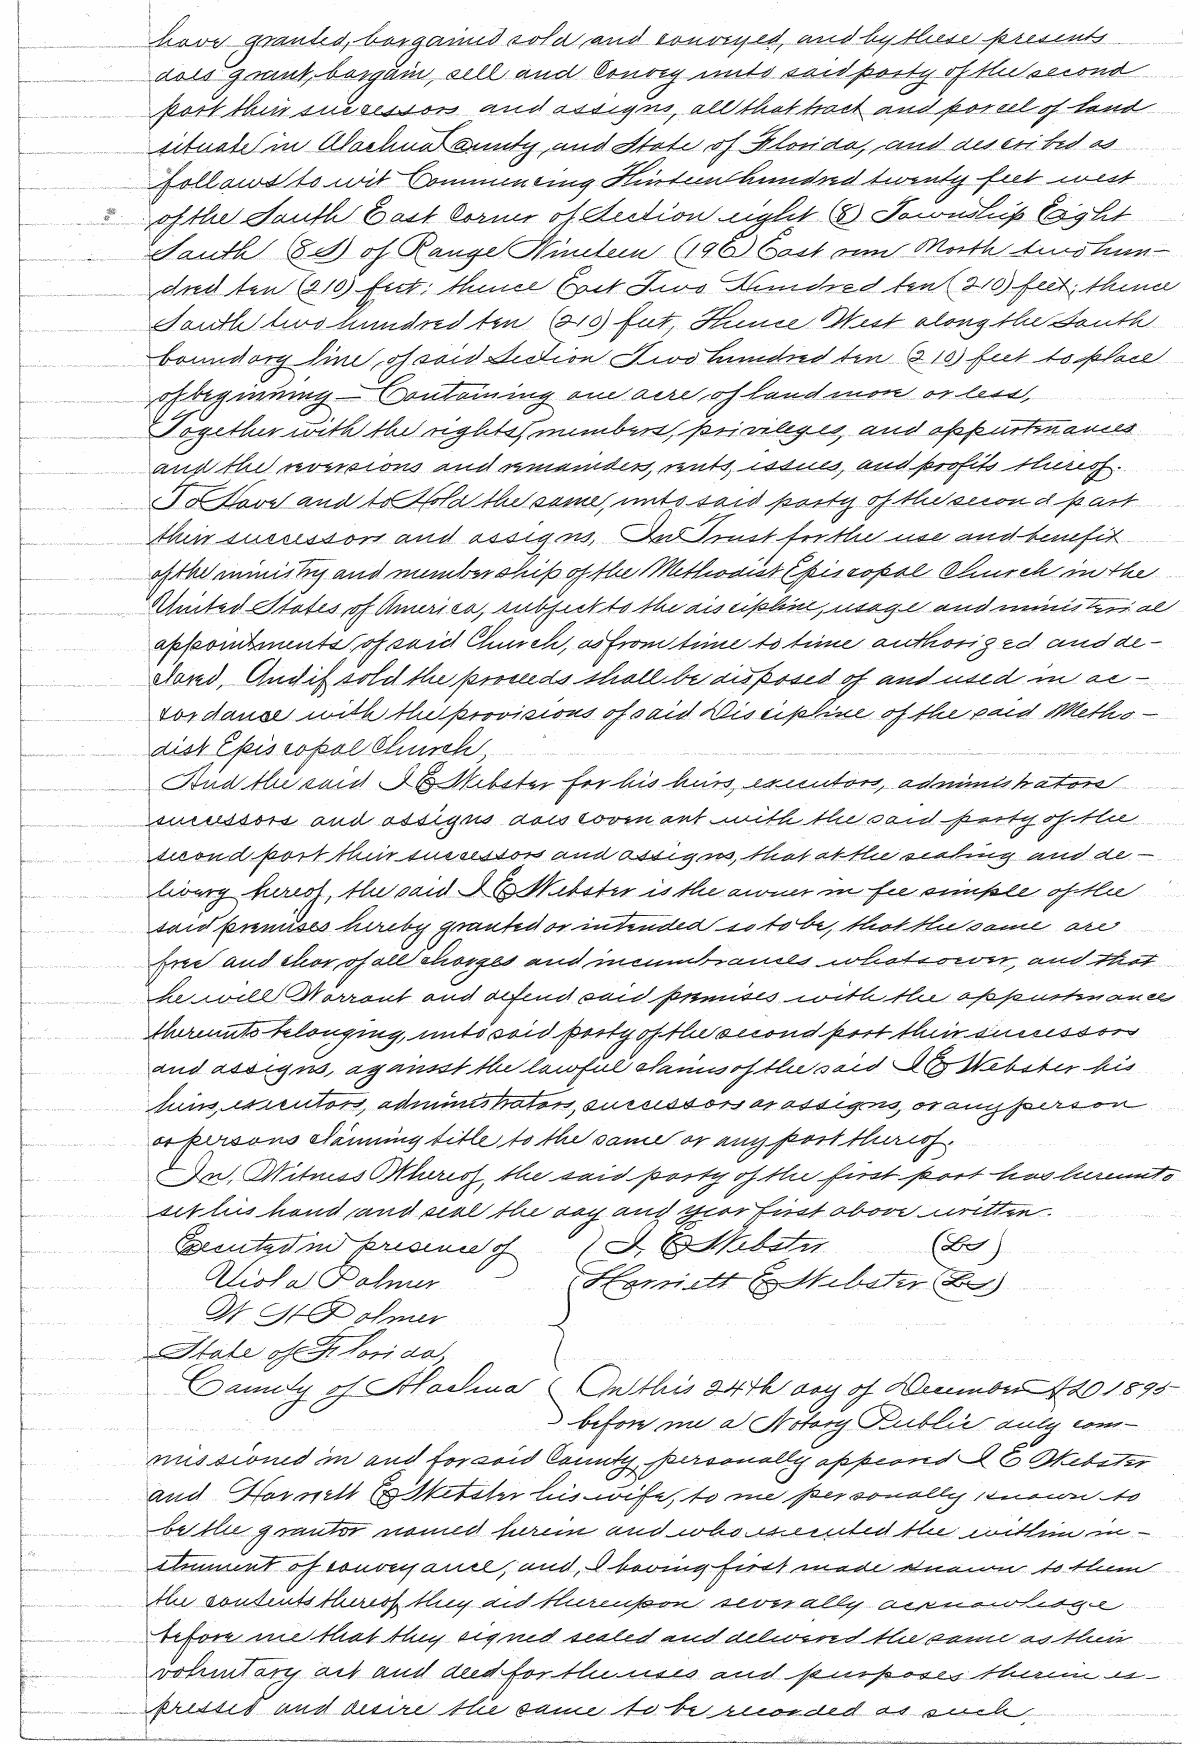 have granted, bargained sold and conveyed, and by these presents
does grant, bargain, sell and Convey unto said party of the second
part their successors and assigns, all that tract and parcel of land
situate in Alachua County, and State of Florida, and described as
follows to wit Commencing Thirteen hundred twenty feet west
of the South East Corner of Section eight (8) Township Eight
South (8S) of Range Nineteen (19E) East run North two hun-
dred ten (210) feet; thence East Two Hundred ten (210) feet; thence
South two hundred ten (210) feet, Thence West along the South
boundary line, of said Section Two hundred ten (210) feet to place
of beginning — Containing one acre of land more or less,
Together with the rights, members, privileges, and appurtenances
and the reversions and remainders, rents, issues, and profits thereof.
To Have and to Hold the same, unto said party of the second part
their successors and assigns, In Trust for the use and benefit
of the ministry and membership of the Methodist Episcopal Church in the
United States of America, subject to the discipline, usage and ministerial
appointments of said Church, as from time to time authorized and de-
clared, And if sold the proceeds shall be disposed of and used in ac-
cordance with the provisions of said Discipline of the said Metho-
dist Episcopal Church,
And the said I E Webster for his heirs, executors, administrators
successors and assigns does covenant with the said party of the
second part their successors and assigns, that at the sealing and de-
livery hereof, the said I E Webster is the owner in fee simple of the
said premises hereby granted or intended so to be, that the same are
free and clear, of all charges and incumbrances whatsoever, and that
he will Warrant and defend said premises with the appurtenances
thereunto belonging, unto said party of the second part their successors
and assigns, against the lawful claims of the said I E Webster his
heirs, executors, administrators, successors or assigns, or any person
or persons claiming title to the same or any part thereof.
In, Witness Whereof, the said party of the first part has hereunto
set his hand and seal the day and year first above written.
Executed in presence of ) I. E Webster (LS)
Viola Palmer Harriett E Webster (LS)
W H Palmer
State of Florida,
County of Alachua On this 24th day of December AD 1895
before me a Notary Public duly com-
missioned in and for said County, personally appeared I E Webster
and Harriett E Webster his wife, to me personally known to
be the grantor named herein and who executed the within in-
strument of conveyance, and, I having first made known to them
the contents thereof they did thereupon severally acknowledge
before me that they signed sealed and delivered the same as their
voluntary act and deed for the uses and purposes therein ex-
pressed and desire the same to be recorded as such,